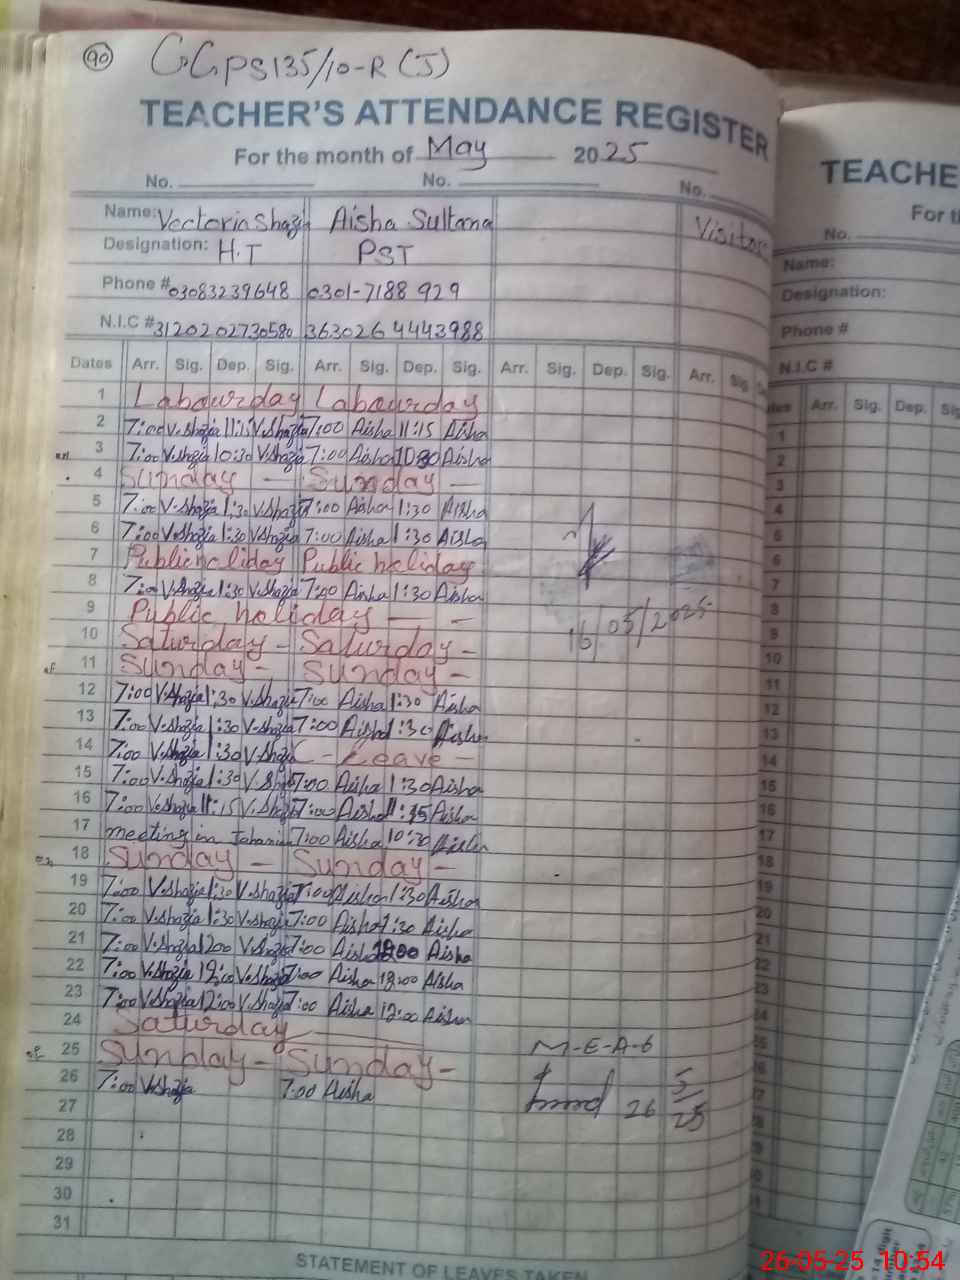 90
GGPS 135/10-R (J)
TEACHER'S ATTENDANCE REGISTER
For the month of May 2025
No. No. No.
Name: Vectoria Shazia Aisha Sultana Visitor
Designation: H.T PST
Phone # 03083239648 0301-7188929
N.I.C # 3120202730580 3630264443988
Dates Arr. Sig. Dep. Sig. Arr. Sig. Dep. Sig. Arr. Sig. Dep. Sig. Arr. Sig.
1 Labourday Labourday
2 7:00 V.Shazia 11:15 V.Shazia 7:00 Aisha 11:15 Aisha
3 7:00 V.Shazia 10:30 V.Shazia 7:00 Aisha 1030 Aisha
4 Sunday — Sunday —
5 7:00 V.Shazia 1:30 V.Shazia 7:00 Aisha 1:30 Aisha
6 7:00 V.Shazia 1:30 V.Shazia 7:00 Aisha 1:30 Aisha
7 Public holiday Public holiday
8 7:00 V.Shazia 1:30 V.Shazia 7:00 Aisha 1:30 Aisha
9 Public holiday — —
16/05/2025
10 Saturday - Saturday -
11 Sunday - Sunday -
12 7:00 V.Shazia 1:30 V.Shazia 7:00 Aisha 1:30 Aisha
13 7:00 V.Shazia 1:30 V.Shazia 7:00 Aisha 1:30 Aisha
14 7:00 V.Shazia 1:30 V.Shazia - Leave -
15 7:00 V.Shazia 1:30 V.Shazia 7:00 Aisha 1:30 Aisha
16 7:00 V.Shazia 11:15 V.Shazia 7:00 Aisha 11:15 Aisha
17 meeting in Jahania 7:00 Aisha 10:30 Aisha
18 Sunday - Sunday -
19 7:00 V.Shazia 1:30 V.Shazia 7:00 Aisha 1:30 Aisha
20 7:00 V.Shazia 1:30 V.Shazia 7:00 Aisha 1:30 Aisha
21 7:00 V.Shazia 1200 V.Shazia 7:00 Aisha 1200 Aisha
22 7:00 V.Shazia 12:00 V.Shazia 7:00 Aisha 12:00 Aisha
23 7:00 V.Shazia 12:00 V.Shazia 7:00 Aisha 12:00 Aisha
24 Saturday
25 Sunday - Sunday -
M-E-A-6
26 7:00 V.Shazia 7:00 Aisha
26 5/25
27
28
29
30
31
STATEMENT OF LEAVES TAKEN
TEACHE
For t
No.
Name:
Designation:
Phone #
N.I.C #
Arr. Sig. Dep. Sig
1
2
3
4
5
6
7
8
9
10
11
12
13
14
15
16
17
18
19
20
21
22
23
24
26-05-25 10:54